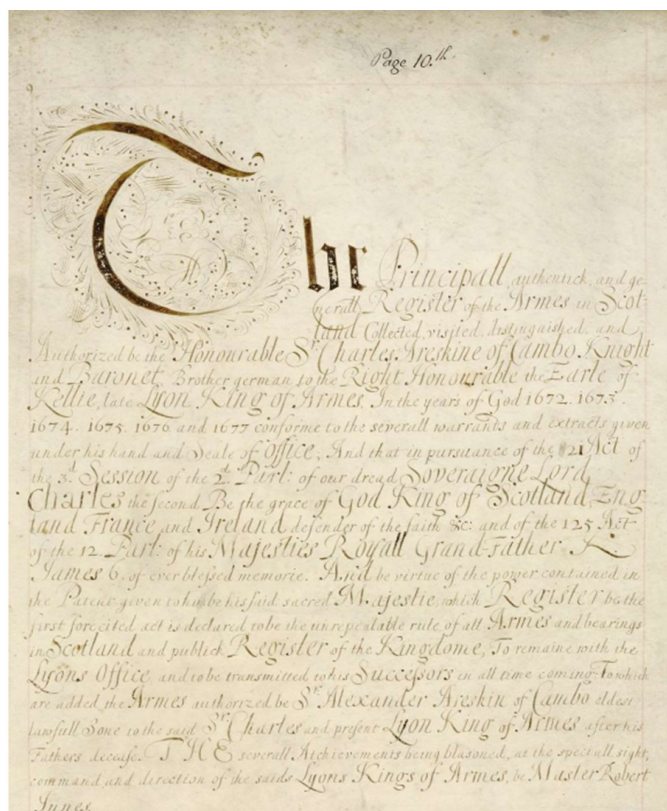 Page 10.th
The Principall, authentick, and ge-
nerall Register of the Armes in Scot-
land Collected, visited, distinguished, and
Authorized be the Honourable Sr. Charles Areskine of Cambo Knight
and Baronet, Brother german to the Right Honourable the Earle of
Kellie, late Lyon King of Armes, In the years of God 1672. 1673.
1674. 1675. 1676 and 1677 conforme to the severall warrants and extracts given
under his hand and Seale of Office, And that in pursuance of the 21 Act of
the 3.d Session of the 2.d Parl: of our dread Soveraigne Lord
Charles the second Be the grace of God King of Scotland, Eng-
land France and Ireland defender of the faith &c: and of the 125 Act
of the 12 Parl: of his Majesties Royall Grand-Father K
James 6. of ever blessed memorie. And be virtue of the power contained in
the Patent given to him be his said sacred Majestie, which Register be the
first forecited act is declared to be the unrepealable rule of all Armes and bearings
in Scotland and publick Register of the Kingdome, To remaine with the
Lyons Office and to be transmitted to his Successors in all time coming: To which
are added the Armes authorized be Sr. Alexander Areskin of Cambo eldest
lawfull Sone to the said Sr. Charles and present Lyon King of Armes after his
Fathers decease. THE severall Atchievements being blasoned, at the speciall sight,
command and direction of the saids Lyons Kings of Armes, be Master Robert
Innes